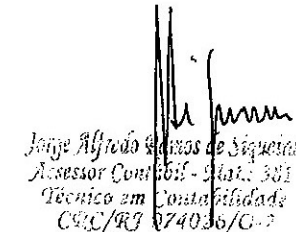 Jorge Alfredo Ramos de Siqueira
Assessor Contábil - Mat.: 381
Técnico em Contabilidade
CRC/RJ 074036/O-